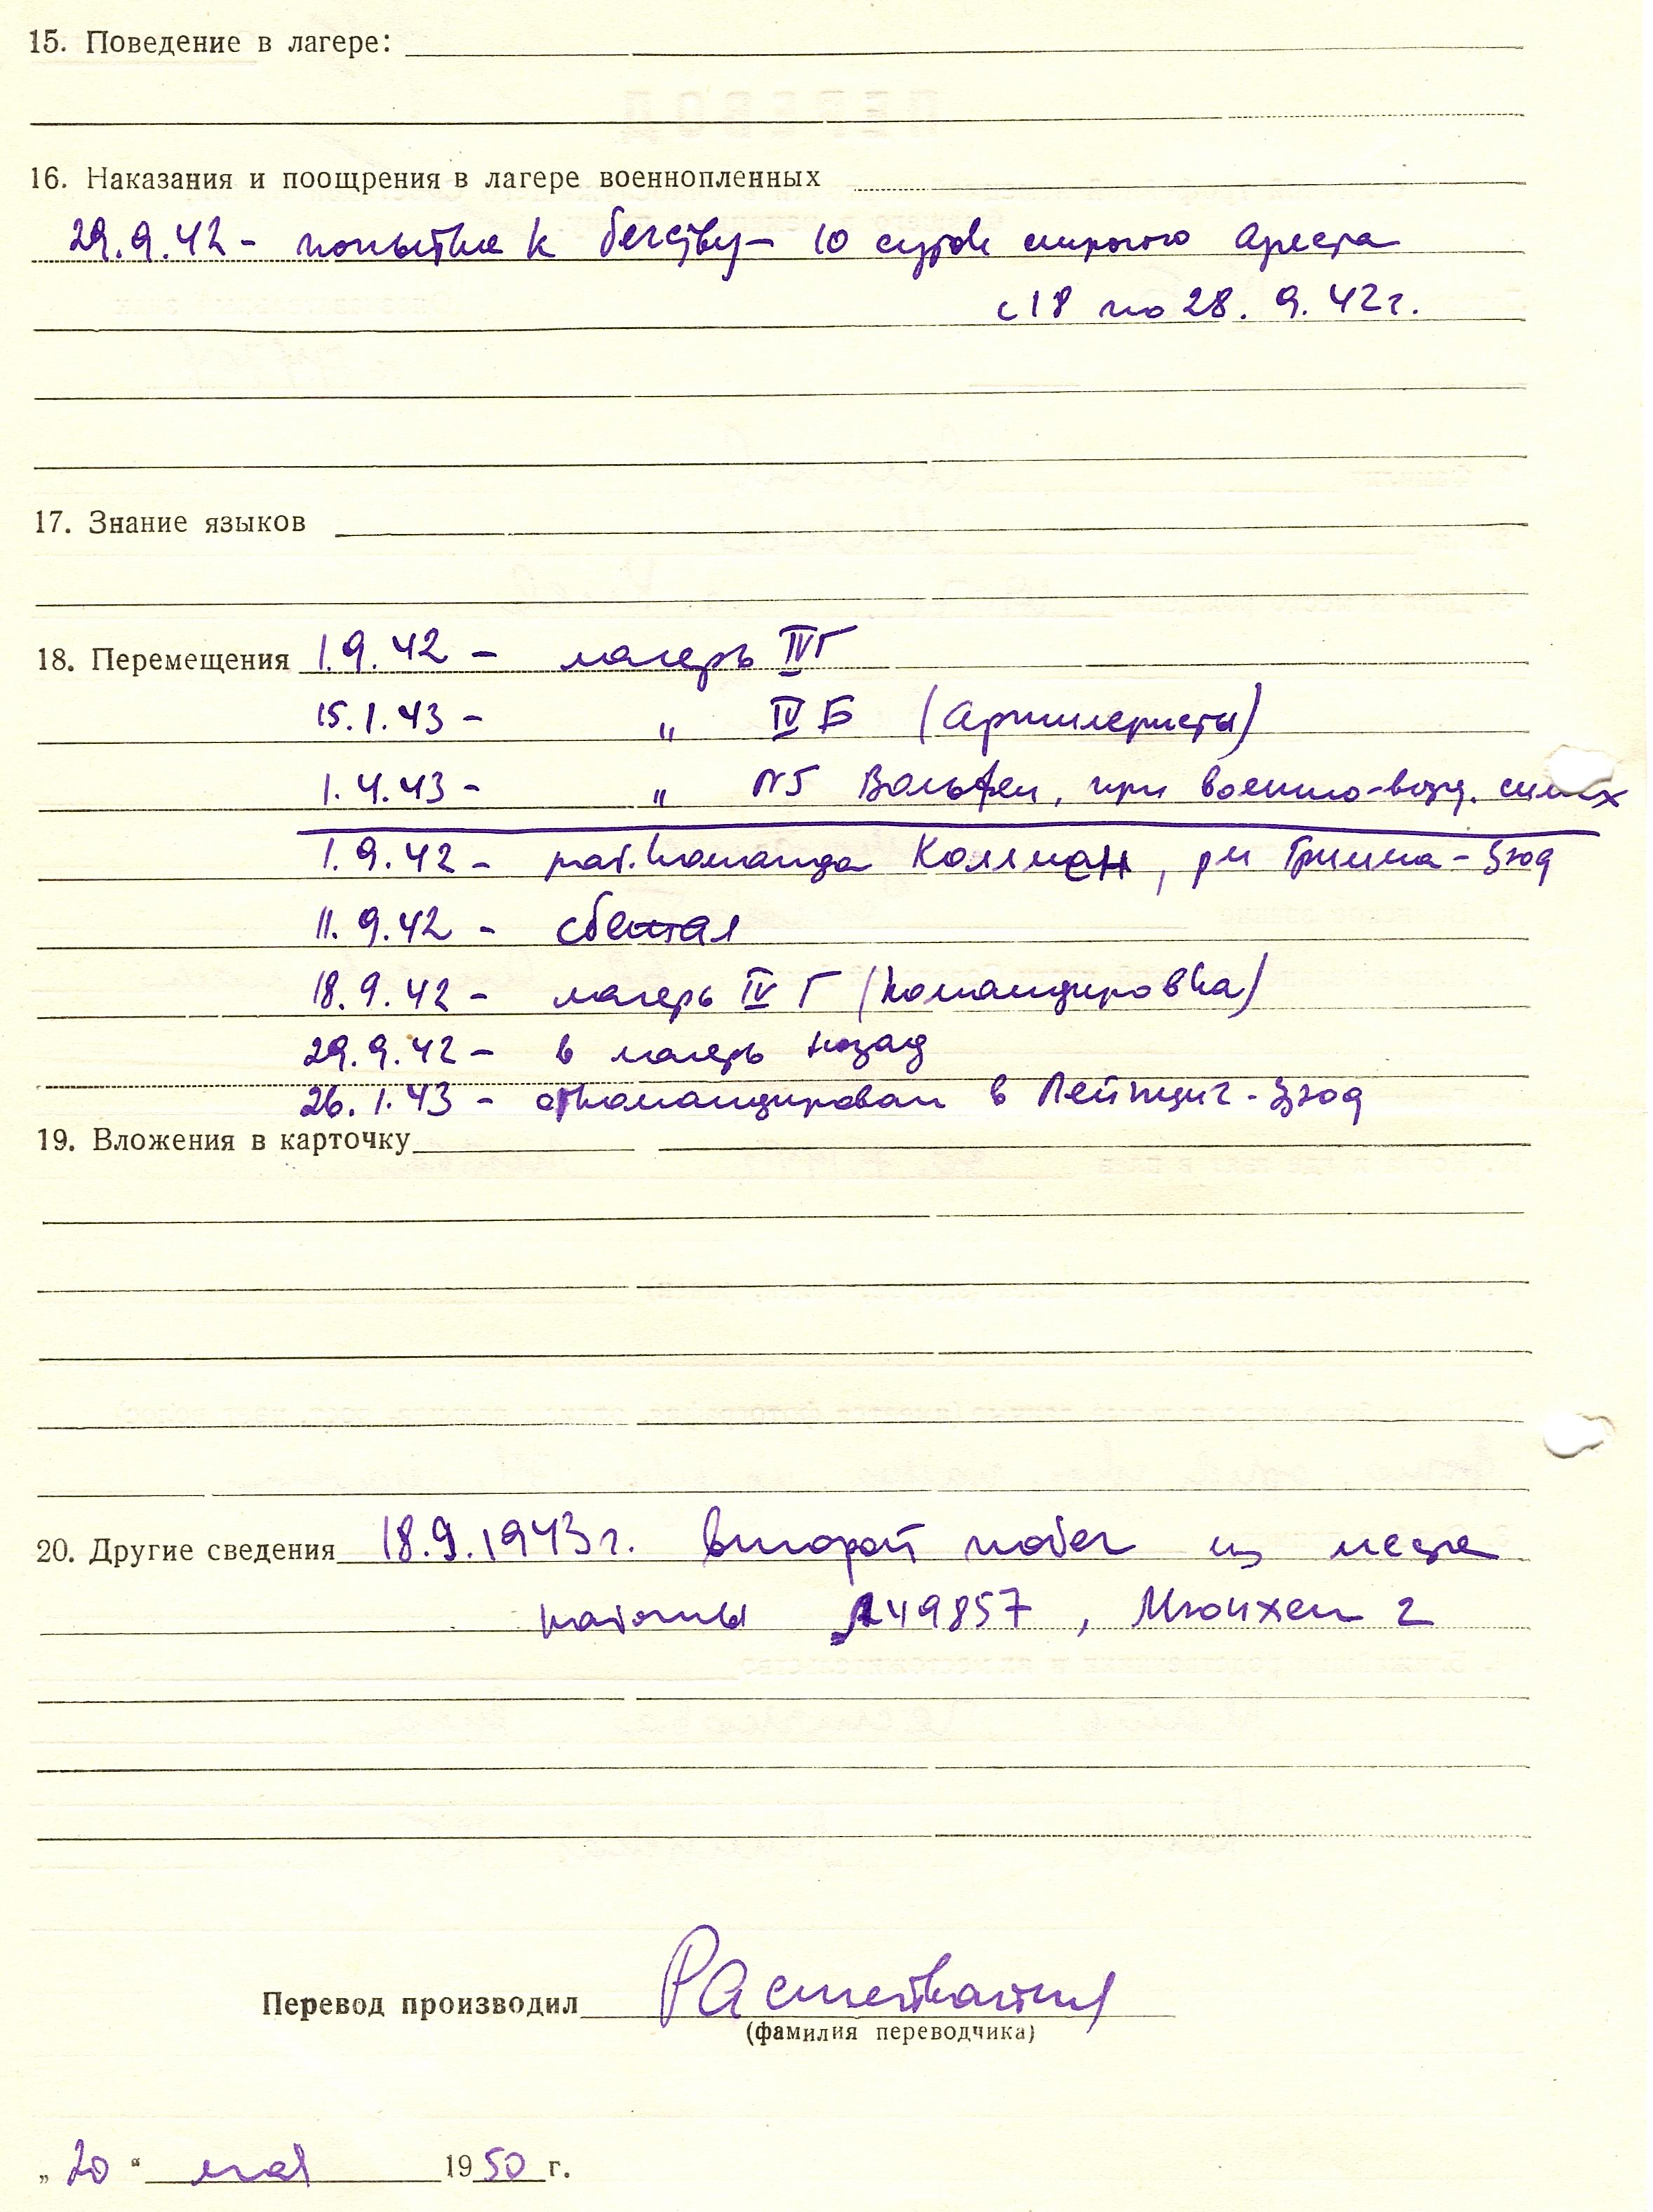 15. Поведение в лагере:
16. Наказания и поощрения в лагере военнопленных
29.9.42 - попытка к бегству - 10 суток строгого ареста
с 18 по 28. 9. 42 г.
17. Знание языков
18. Перемещения 1.9.42 - лагерь IV Г
15.1.43 - " IV Б (артиллеристы)
1.4.43 - " Вольфен, при военно-возд. силах
1.9.42 - раб. команда Колман, рн Гримма-Зюд
11.9.42 - сбежал
18.9.42 - лагерь IV Г (командировка)
29.9.42 - в лагерь назад
26.1.43 - откомандирован в Лейпциг-Зюд
19. Вложения в карточку
20. Другие сведения 18.9.1943 г. второй побег из места
работы 49857, Мюнхен 2
Перевод производил
(фамилия переводчика)
„ 20 “ мая 1950 г.